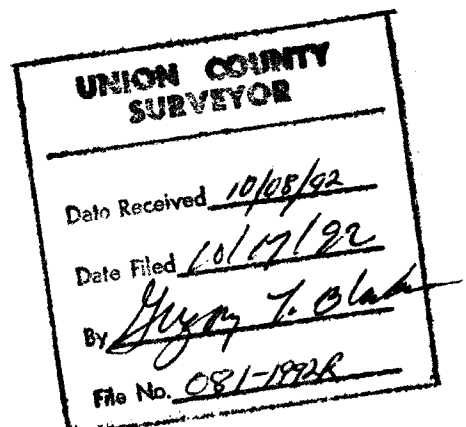 UNION COUNTY
SURVEYOR
Date Received 10/08/92
Date Filed 10/17/92
By Gregory T. Blackman
File No. 081-1992R